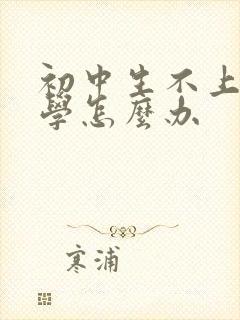 初中生不上
學怎麼办
寒浦